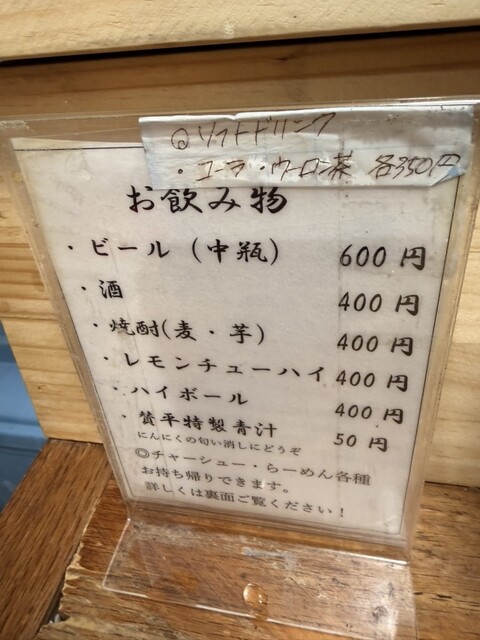 ◎ソフトドリンク
・コーラ・ウーロン茶 各350円
お飲み物
・ビール（中瓶） 600円
・酒 400円
・焼酎(麦・芋) 400円
・レモンチューハイ 400円
・ハイボール 400円
・賛平特製青汁 50円
にんにくの匂い消しにどうぞ
◎チャーシュー・らーめん各種
お持ち帰りできます。
詳しくは裏面ご覧ください！